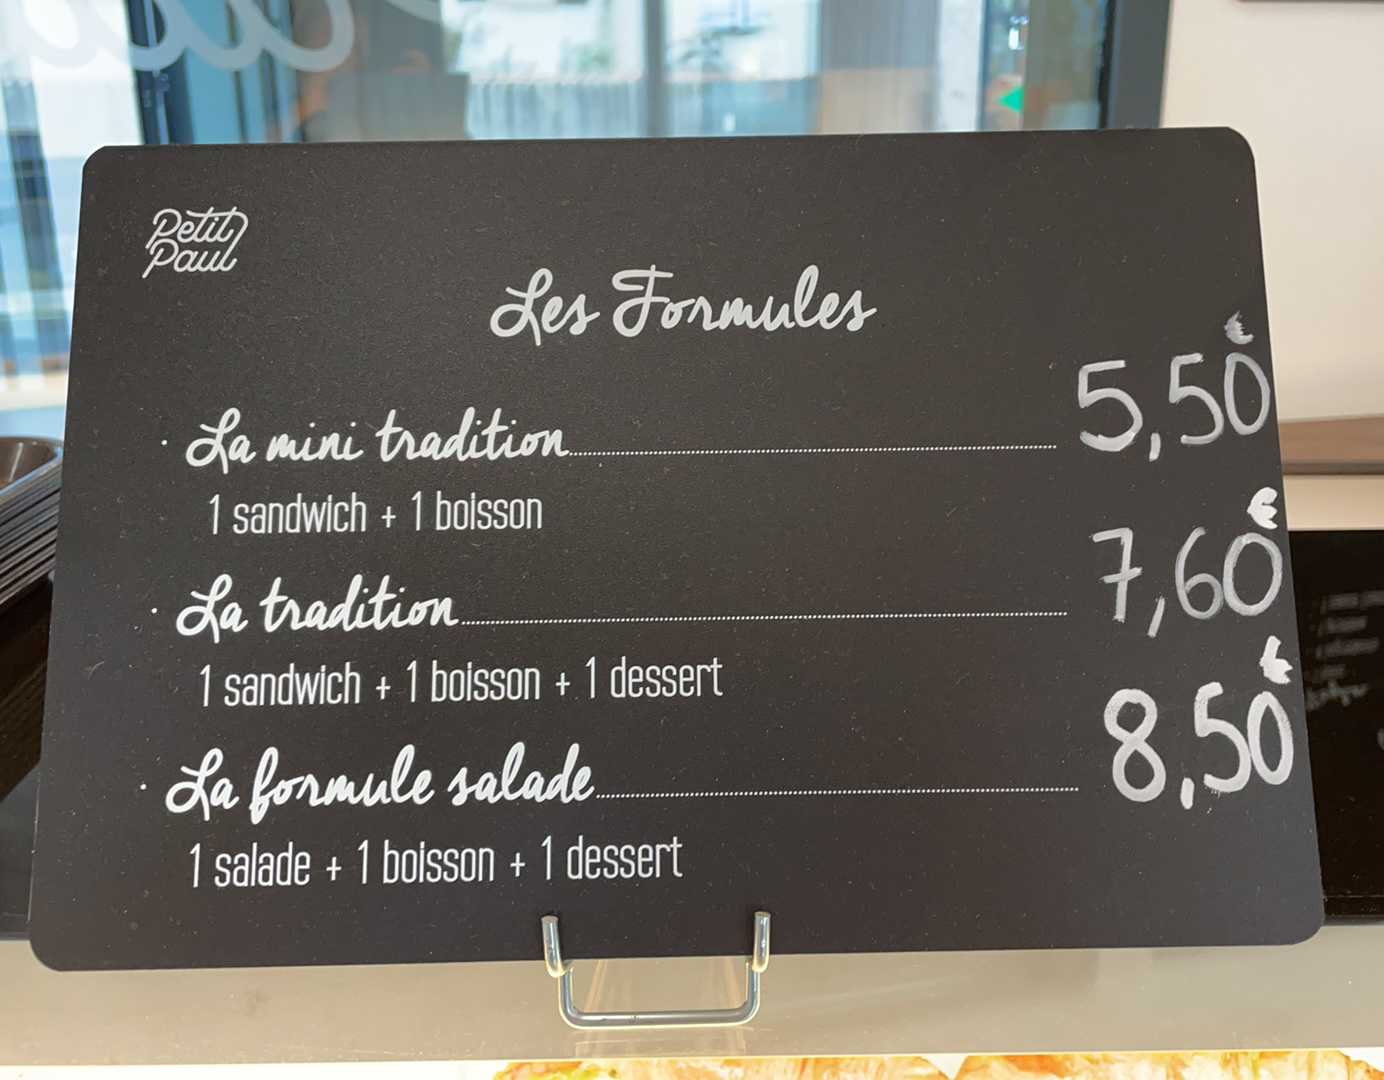 Petit
Paul
Les Formules
· La mini tradition 5,50€
1 sandwich + 1 boisson
· La tradition 7,60€
1 sandwich + 1 boisson + 1 dessert
· La formule salade 8,50€
1 salade + 1 boisson + 1 dessert